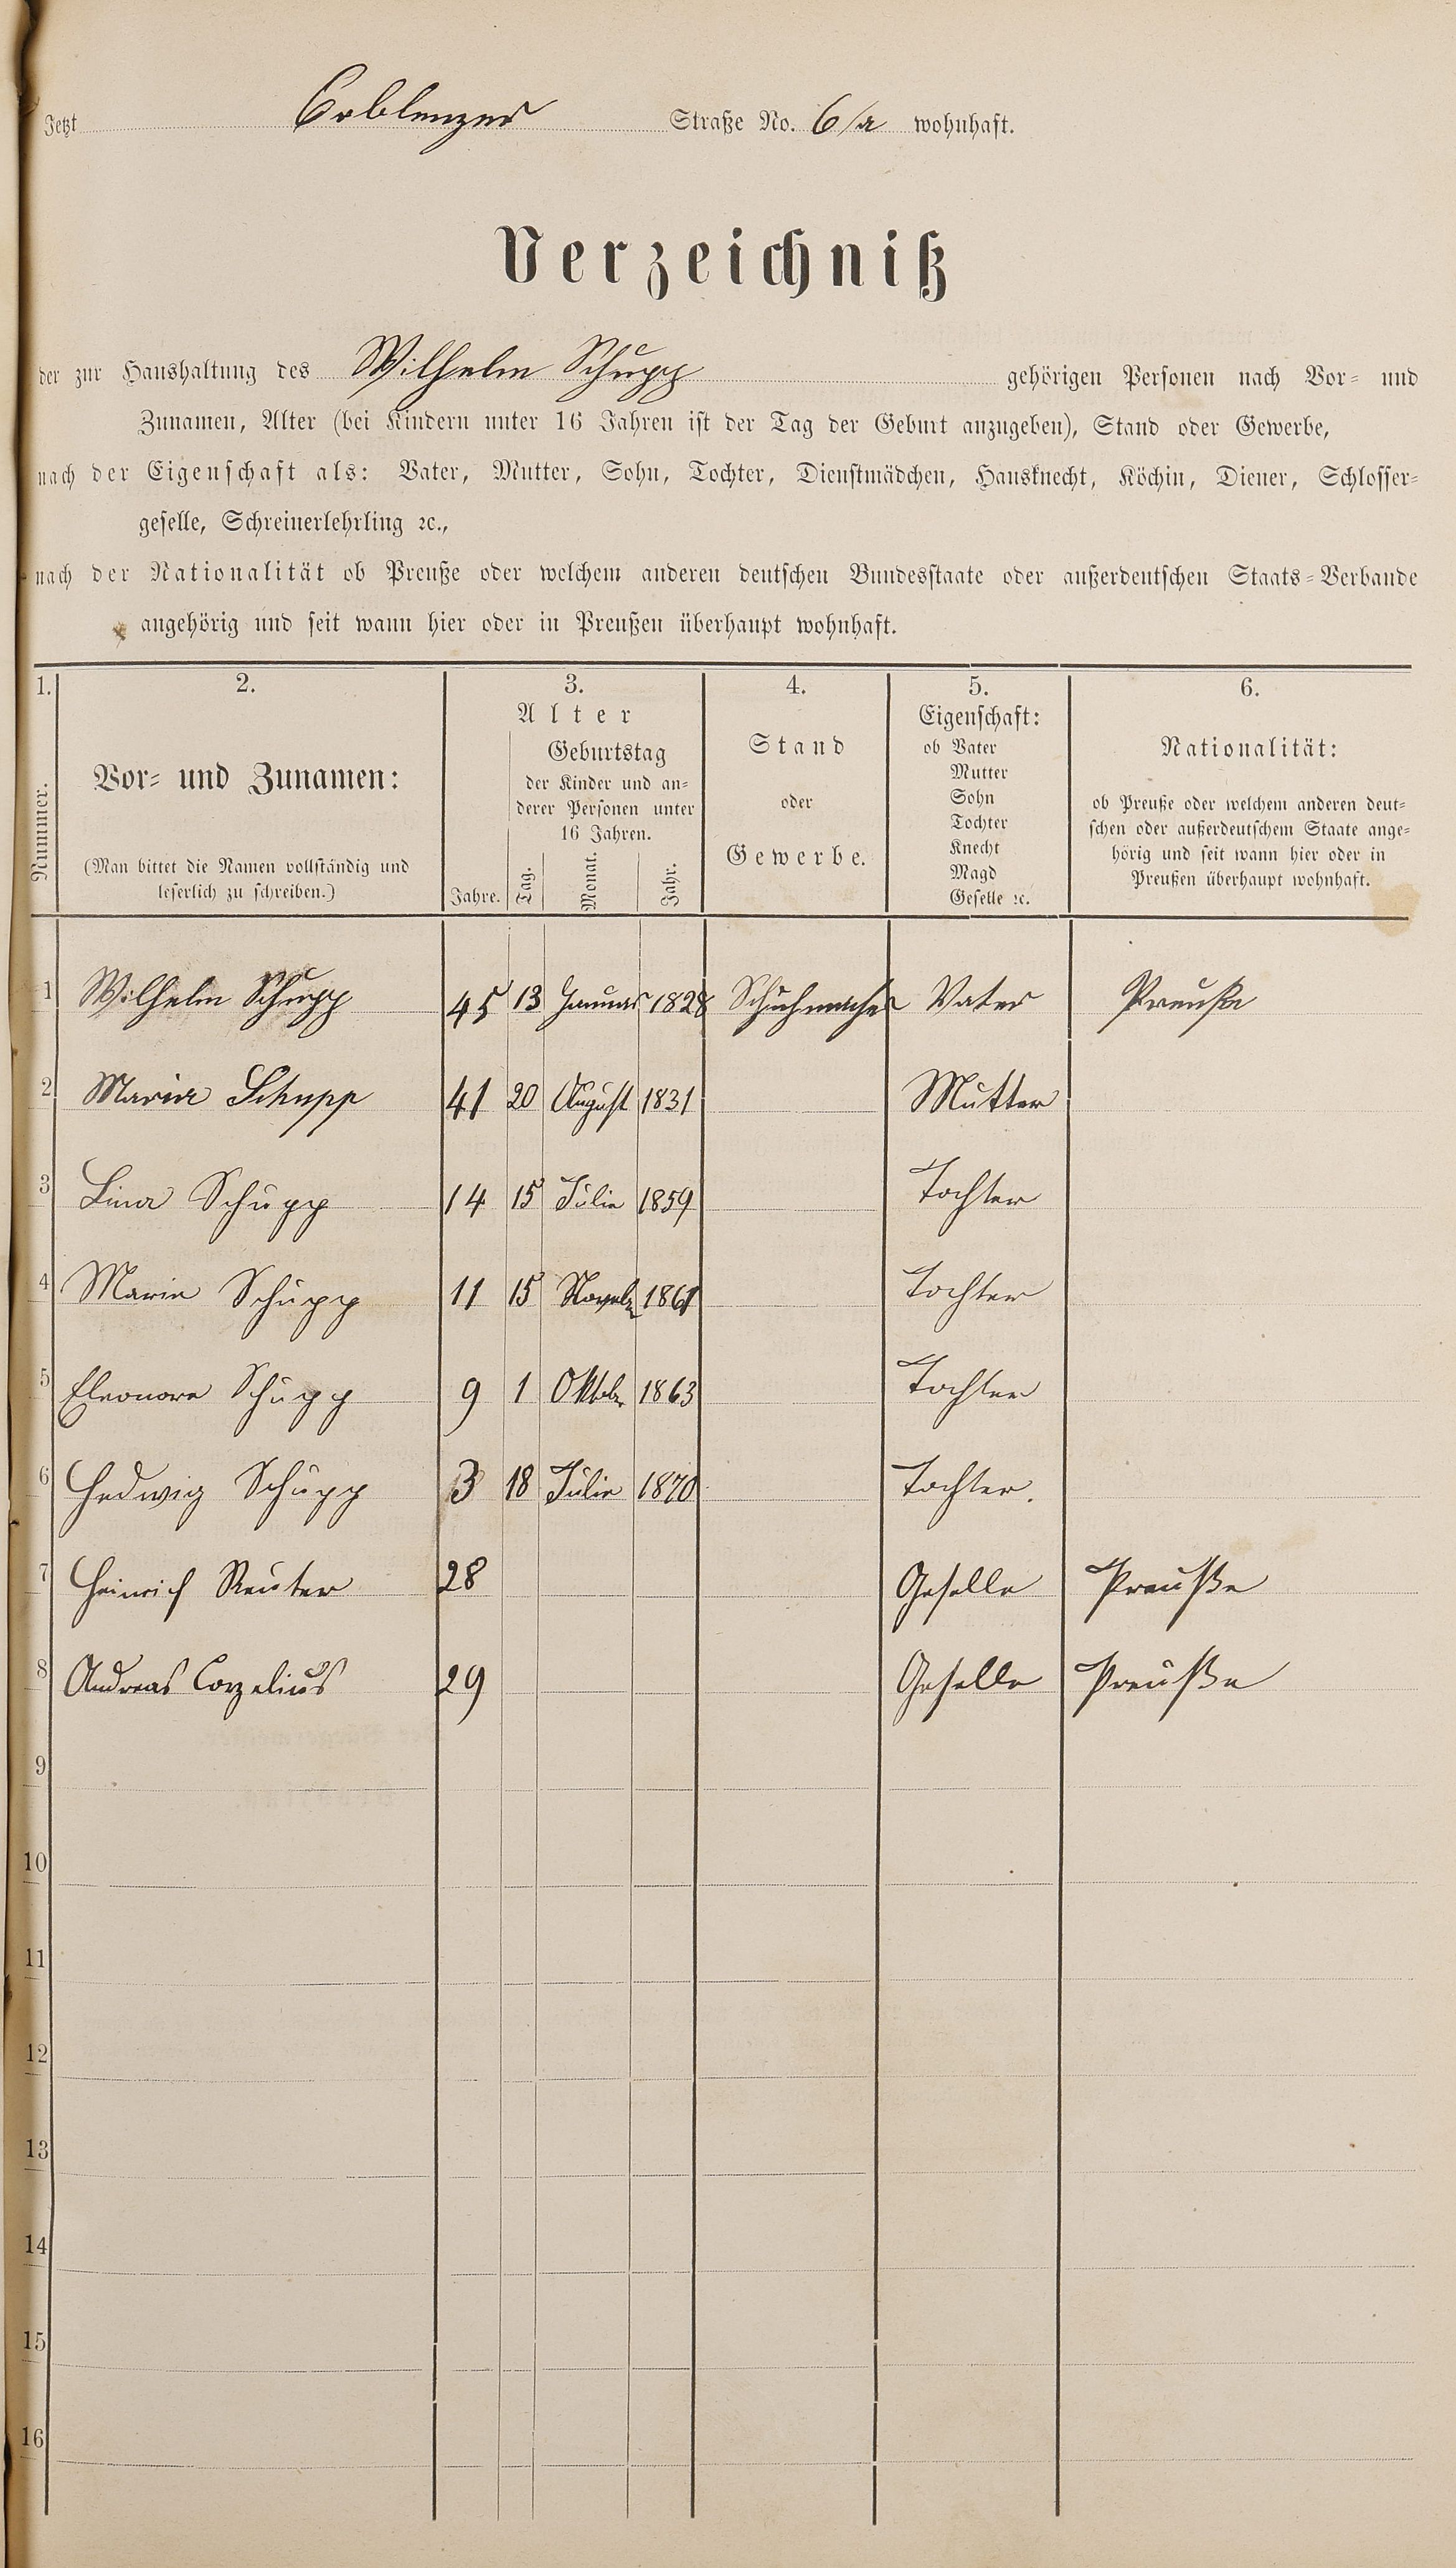 Jetzt Coblenzer Straße No. 6/a wohnhaft.
Verzeichniß
der zur Haushaltung des Wilhelm Schupp gehörigen Personen nach Vor- und
Zunamen, Alter (bei Kindern unter 16 Jahren ist der Tag der Geburt anzugeben), Stand oder Gewerbe,
nach der Eigenschaft als: Vater, Mutter, Sohn, Tochter, Dienstmädchen, Hausknecht, Köchin, Diener, Schlosser-
geselle, Schreinerlehrling ꝛc.,
nach der Nationalität ob Preuße oder welchem anderen deutschen Bundesstaate oder außerdeutschen Staats-Verbande
angehörig und seit wann hier oder in Preußen überhaupt wohnhaft.
1. 2. 3. 4. 5. 6.
Nummer.
Vor- und Zunamen:
(Man bittet die Namen vollständig und
leserlich zu schreiben.)
Alter
Jahre.
Geburtstag
der Kinder und an-
derer Personen unter
16 Jahren.
Tag. Monat. Jahr.
Stand
oder
Gewerbe.
Eigenschaft:
ob Vater
Mutter
Sohn
Tochter
Knecht
Magd
Geselle ꝛc.
Nationalität:
ob Preuße oder welchem anderen deut-
schen oder außerdeutschem Staate ange-
hörig und seit wann hier oder in
Preußen überhaupt wohnhaft.
1 Wilhelm Schupp 45 13 Januar 1828 Schuhmacher Vater Preuße
2 Maria Schupp 41 20 August 1831 Mutter
3 Lina Schupp 14 15 Julie 1859 Tochter
4 Marie Schupp 11 15 Novebr 1861 Tochter
5 Eleonore Schupp 9 1 Oktobr 1863 Tochter
6 Hedwig Schupp 3 18 Julie 1870 Tochter.
7 Heinrich Reuter 28 Geselle Preuße
8 Andreas Corzelius 29 Geselle Preuße
9
10
11
12
13
14
15
16